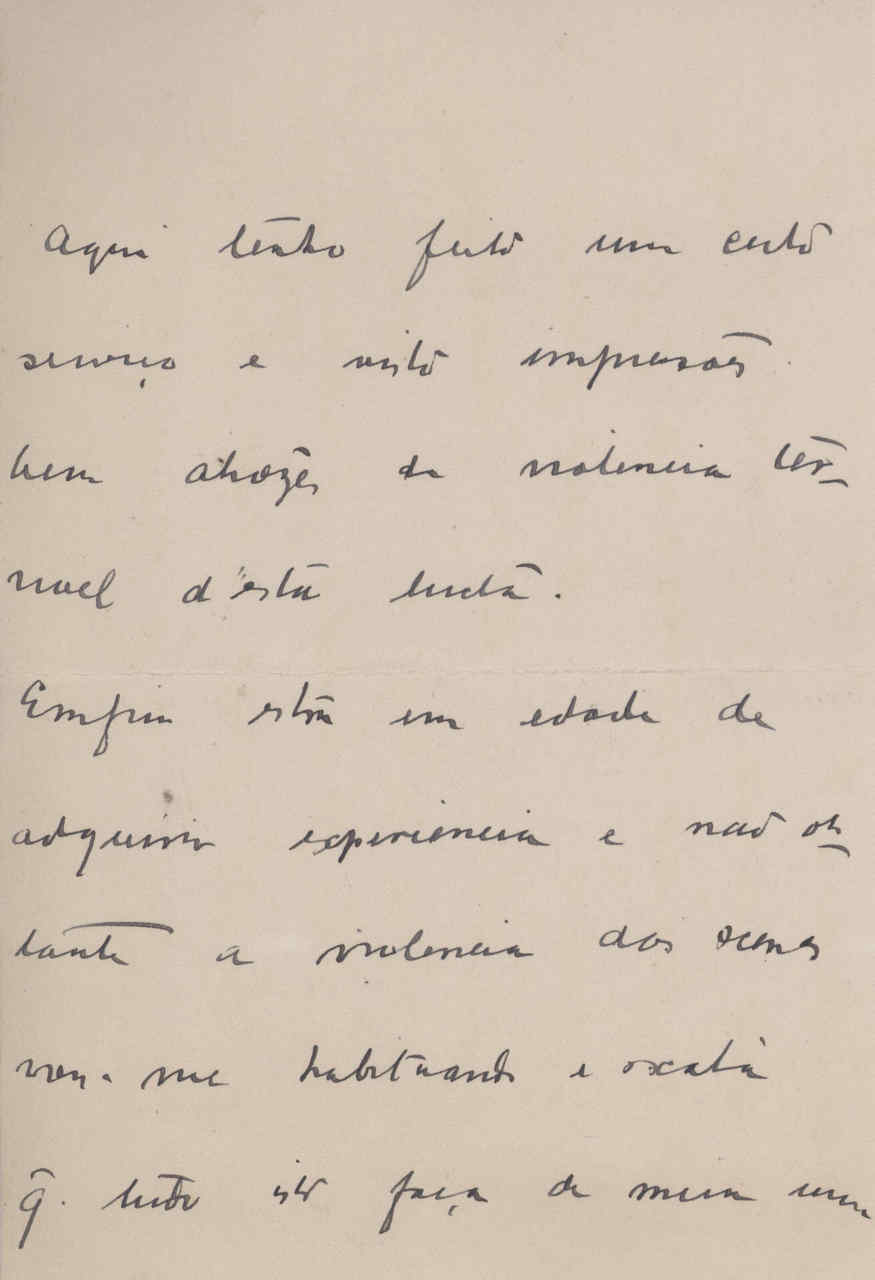 Aqui tenho feito um certo
serviço e visto impressões
bem atrozes da violencia ter-
rivel d'esta lucta.
Emfim estou em edade de
adquirir experiencia e não obs-
tante a violencia das scenas
vou-me habituando e oxalá
q. tudo isto faça de mim um